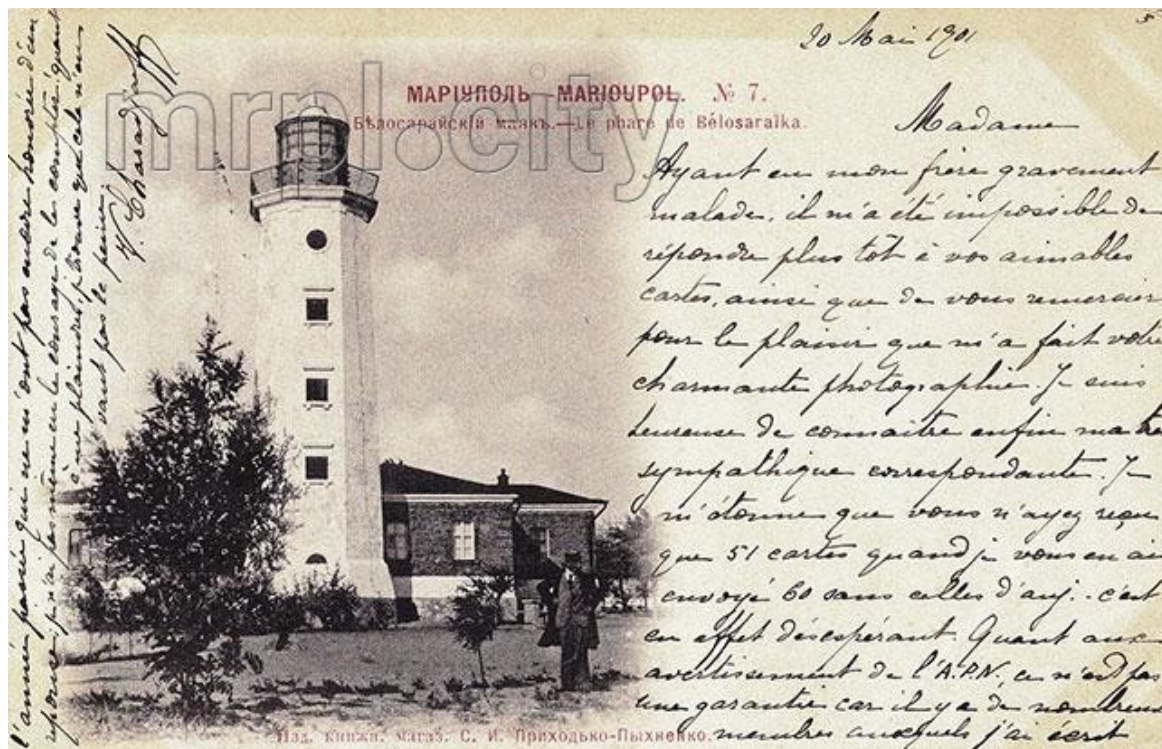 20 Mai 1901
МАРІУПОЛЬ-MARIOUPOL. № 7.
Бѣлосарайскій маякъ.—Le phare de Bélosaraïka.
mrpl.city
Madame
Ayant eu mon frère gravement
malade, il m'a été impossible de
répondre plus tôt à vos aimables
cartes, ainsi que de vous remercier
pour le plaisir que m'a fait votre
charmante photographie. Je suis
heureuse de connaitre enfin ma très
sympathique correspondante. Je
m'étonne que vous n'ayez reçu
que 51 cartes quand je vous en ai
envoyé 60 sans celles d'auj. c'est
en effet désespérant. Quant aux
avertissement de l'A.P.N. ce n'est pas
une garantie car il y a de nombreux
membres auxquels j'ai écrit
l'année passée qui ne m'ont pas encore honorée d'une
réponse; je n'ai pas même eu le courage de les compter, quant
à me plaindre, je trouve que cela n'en
vaut pas la peine.
Изд. книжн. магаз. С. И. Приходько-Пыхненко.